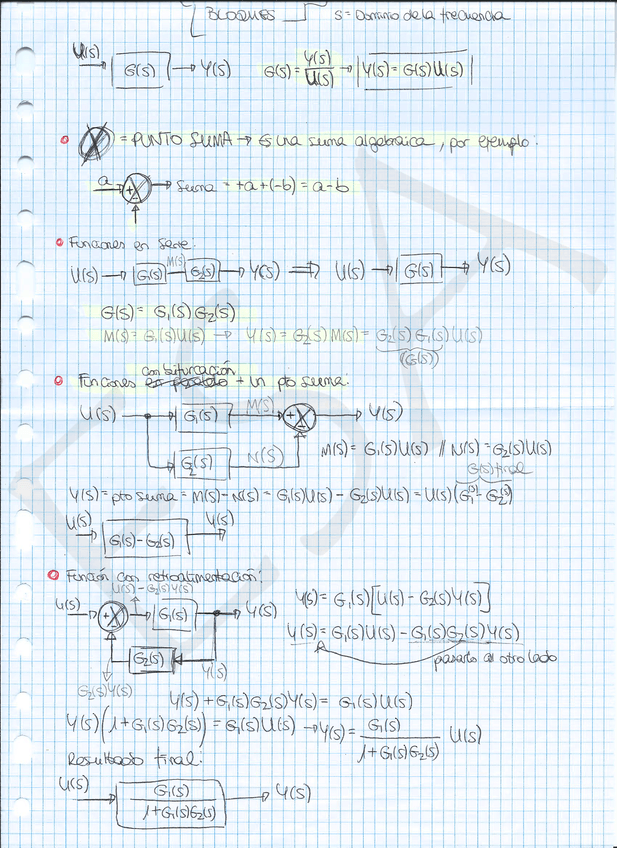 BLOQUES S = Dominio de la frecuencia
U(S) G(S) Y(S) G(S) = Y(S)/U(S) → Y(S) = G(S)U(S)
= PUNTO SUMA → Es una suma algebraica, por ejemplo.
a + - → Suma = +a+(-b) = a-b
Funciones en serie:
U(S) → G1(S) M(S) G2(S) → Y(S) ⇒ U(S) → G(S) → Y(S)
G(S) = G1(S) G2(S)
M(S) = G1(S)U(S) → Y(S) = G2(S) M(S) = G2(S) G1(S) U(S)
(G(S))
con bifurcación
Funciones en paralelo + un pto suma:
U(S) G1(S) M(S) + - Y(S)
G2(S) N(S) M(S) = G1(S)U(S) // N(S) = G2(S)U(S)
G(S) final
Y(S) = pto suma = M(S) - N(S) = G1(S)U(S) - G2(S)U(S) = U(S)(G1(S) - G2(S))
U(S) G1(S) - G2(S) Y(S)
Función con retroalimentación:
U(S) - G2(S)Y(S)
U(S) + - G1(S) Y(S) Y(S) = G1(S)[U(S) - G2(S)Y(S)]
G2(S) Y(S) Y(S) = G1(S)U(S) - G1(S)G2(S)Y(S)
pasarlo al otro lado
G2(S)Y(S)
Y(S) + G1(S)G2(S)Y(S) = G1(S)U(S)
Y(S)(1 + G1(S)G2(S)) = G1(S)U(S) → Y(S) = G1(S)/1+G1(S)G2(S) U(S)
Resultado final:
U(S) → G1(S)/1+G1(S)G2(S) → Y(S)